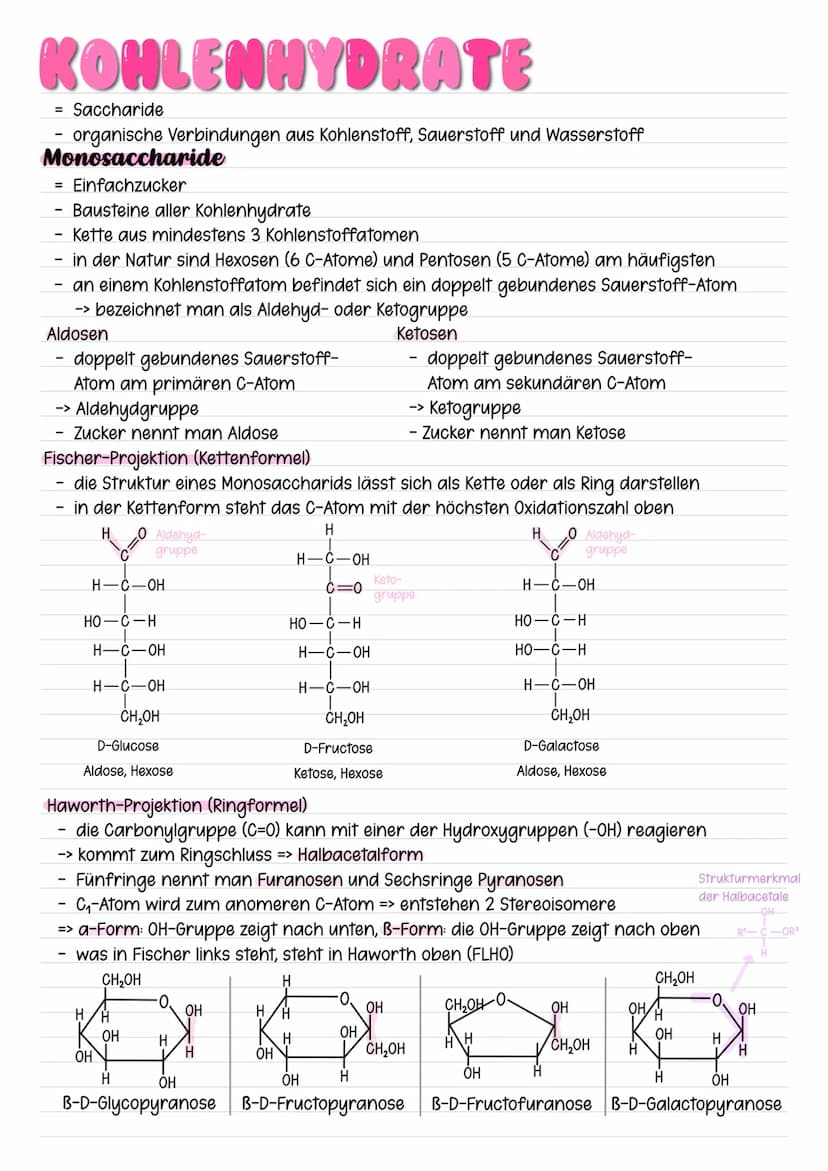 KOHLENHYDRATE
= Saccharide
- organische Verbindungen aus Kohlenstoff, Sauerstoff und Wasserstoff
Monosaccharide
= Einfachzucker
- Bausteine aller Kohlenhydrate
- Kette aus mindestens 3 Kohlenstoffatomen
- in der Natur sind Hexosen (6 C-Atome) und Pentosen (5 C-Atome) am häufigsten
- an einem Kohlenstoffatom befindet sich ein doppelt gebundenes Sauerstoff-Atom
-> bezeichnet man als Aldehyd- oder Ketogruppe
Aldosen
- doppelt gebundenes Sauerstoff-
Atom am primären C-Atom
-> Aldehydgruppe
- Zucker nennt man Aldose
Ketosen
- doppelt gebundenes Sauerstoff-
Atom am sekundären C-Atom
-> Ketogruppe
- Zucker nennt man Ketose
Fischer-Projektion (Kettenformel)
- die Struktur eines Monosaccharids lässt sich als Kette oder als Ring darstellen
- in der Kettenform steht das C-Atom mit der höchsten Oxidationszahl oben
H O Aldehyd-
gruppe
C
H—C—OH
HO—C—H
H—C—OH
H—C—OH
CH₂OH
D-Glucose
Aldose, Hexose
H
H—C—OH
C=O Keto-
gruppe
HO—C—H
H—C—OH
H—C—OH
CH₂OH
D-Fructose
Ketose, Hexose
H O Aldehyd-
gruppe
C
H—C—OH
HO—C—H
HO—C—H
H—C—OH
CH₂OH
D-Galactose
Aldose, Hexose
Haworth-Projektion (Ringformel)
- die Carbonylgruppe (C=O) kann mit einer der Hydroxygruppen (-OH) reagieren
-> kommt zum Ringschluss => Halbacetalform
- Fünfringe nennt man Furanosen und Sechsringe Pyranosen
- C₁-Atom wird zum anomeren C-Atom => entstehen 2 Stereoisomere
=> α-Form: OH-Gruppe zeigt nach unten, ß-Form: die OH-Gruppe zeigt nach oben
- was in Fischer links steht, steht in Haworth oben (FLHO)
Strukturmerkmal
der Halbacetale
OH
R¹—C—OR²
H
CH₂OH
O
H H OH
OH H
OH H
H OH
ß-D-Glycopyranose
H
O
H H OH
H OH
OH CH₂OH
OH H
ß-D-Fructopyranose
CH₂OH O OH
H H CH₂OH
OH H
ß-D-Fructofuranose
CH₂OH
O
OH H OH
OH H
H H
H OH
ß-D-Galactopyranose